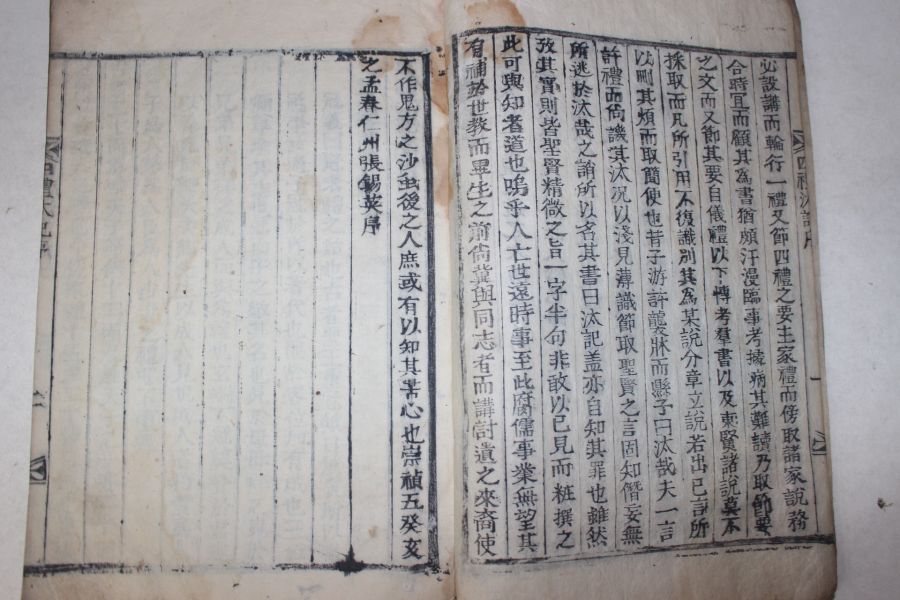 必設講而輪行一禮又節四禮之要主家禮而傍取諸家說務
合時宜而顧其為書猶頗汗漫臨事考據病其難讀乃取節要
之文而又節其要自儀禮以下博考羣書以及東賢諸說莫不
採取而凡所引用不復識別其為某說分章立說若出已言所
以刪其煩而取簡便也昔子游許襲牀而縣子曰汰哉夫一言
許禮而尙譏其汰況以淺見薄識節取聖賢之言固知僭妄無
所逃於汰哉之誚所以名其書曰汰記盖亦自知其罪也雖然
攷其實則皆聖賢精微之旨一字半句非敢以已見而粧撰之
此可與知者道也嗚乎人亡世遠時事至此腐儒事業無望其
有補於世敎而畢生之前尙冀與同志者而講討遺之來裔使
不作鬼方之沙虫後之人庶或有以知其苦心也崇禎五癸亥
之孟春仁州張錫英序
四禮汰記序
一
四禮汰記序